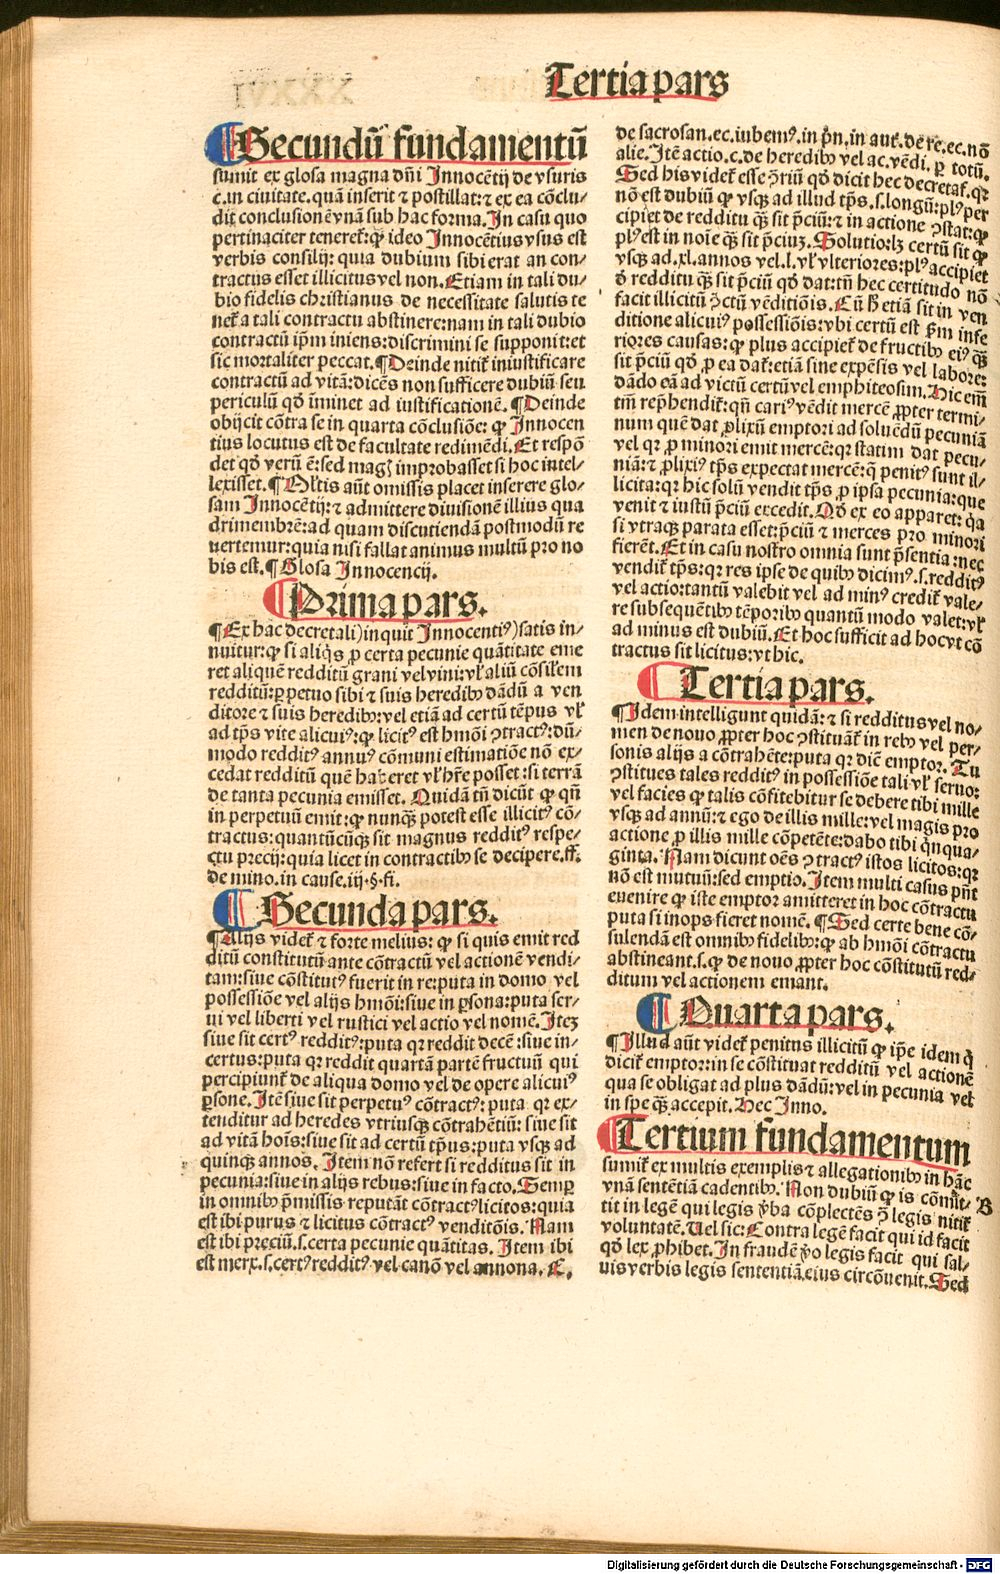 Tertia pars
¶Secundū fundamentū
sumit ex glosa magna dñi Innocētij de vsuris
c. in ciuitate. quā inserit ⁊ postillat: ⁊ ex ea cōclu-
dit conclusionē vnā sub hac forma. In casu quo
pertinaciter teneret: ꝙ ideo Innocētius vsus est
verbis consilij: quia dubium sibi erat an con-
tractus esset illicitus vel non. Etiam in tali du-
bio fidelis christianus de necessitate salutis te
net a tali contractu abstinere: nam in tali dubio
contractū ipm iniens: discrimini se supponit: et
sic mortaliter peccat. ¶Deinde nitit iniustificare
contractū ad vitā: dicēs non sufficere dubiū seu
periculū qd iminet ad iustificationē. ¶Deinde
obijcit cōtra se in quarta cōclusiōe: ꝙ Innocen
tius locutus est de facultate redimēdi. Et respō
det qd verū ē: sed magꝭ improbasset si hoc intel-
lexisset. ¶Mltis aūt omissis placet inserere glo-
sam Innocētij: ⁊ admittere diuisionē illius qua
drimembrē: ad quam discutiendā postmodū re
uertemur: quia nisi fallat animus multū pro no
bis est. ¶Glosa Innocencij.
¶Prima pars.
¶Ex hac decretali) inquit Innocentiꝰ) satis in-
nuitur: ꝙ si aliqs ꝓ certa pecunie quātitate eme
ret aliquē redditū grani vel vini: vl' aliū cōsilem
redditū: ꝑpetuo sibi ⁊ suis heredibꝰ dādū a ven
ditore ⁊ suis heredibꝰ: vel etiā ad certū tēpus vl'
ad tps vite alicuiꝰ: ꝙ licitꝰ est hmōi ꝯtractꝰ: dū-
modo redditꝰ annuꝰ cōmuni estimatiōe nō ex-
cedat redditū quē haberet vl' hr̄e posset: si terrā
de tanta pecunia emisset. Quidā tn̄ dicūt ꝙ qn̄
in perpetuū emit: ꝙ nunqꝫ potest esse illicitꝰ cō-
tractus: quantūcūqꝫ sit magnus redditꝰ respe-
ctu precij: quia licet in contractibꝰ se decipere. ff.
de mino. in cause. iij. §. fi.
¶Secunda pars.
¶Alijs videt ⁊ forte melius: ꝙ si quis emit red
ditū constitutū ante cōtractū vel actionē vendi-
tam: siue cōstitutꝰ fuerit in re: puta in domo vel
possessiōe vel alijs hmōi: siue in ꝑsona: puta ser-
ui vel liberti vel rustici vel actio vel nomē. Itez
siue sit certꝰ redditꝰ: puta qꝛ reddit decē: siue in-
certus: puta qꝛ reddit quartā partē fructuū qui
percipiunt de aliqua domo vel de opere alicuiꝰ
ꝑsone. Itē siue sit perpetuꝰ cōtractꝰ: puta qꝛ ex-
tenditur ad heredes vtriusqꝫ cōtrahētiū: siue sit
ad vitā hoīs: siue sit ad certū tp̄us: puta vsqꝫ ad
quinqꝫ annos. Item nō refert si redditus sit in
pecunia: siue in alijs rebus: siue in facto. Semꝑ
in omnibꝰ p̄missis reputāt cōtractꝰ licitos: quia
est ibi purus ⁊ licitus cōtractꝰ venditōis. Nam
est ibi preciū. s. certa pecunie quātitas. Item ibi
est merx. s. certꝰ redditꝰ vel canō vel annona. C.
de sacrosan. ec. iubemꝰ. in pn̄. in aut. de re. ec. nō
alie. Itē actio. c. de heredibꝰ vel ac. vēdi. ꝑ totū.
Sed his videt esse ꝯriū qd dicit hec decretal'. qꝛ
nō est dubiū ꝙ vsqꝫ ad illud tps. s. longū: plꝰ per
cipiet de redditu qꝫ sit p̄ciū: ⁊ in actione ꝯstat: ꝙ
plꝰ est in noīe qꝫ sit p̄ciuꝫ. Solutio: lꝫ certū sit ꝙ
vsqꝫ ad. xl. annos vel. l. vl' vlteriores: plꝰ accipiet
d' redditu qꝫ sit p̄ciū qd dat: tn̄ hec certitudo nō
facit illicitū ꝯctū vēditiōis. Cū h̄ etiā sit in ven
ditione alicuiꝰ possessiōis: vbi certū est ẜm infe
riores causas: ꝙ plus accipiet de fructibꝰ eiꝰ qꝫ
sit p̄ciū qd ꝓ ea dat: etiā sine expēsis vel labore:
dādo eā ad victū certū vel emphiteosim. Hic em̄
tm̄ rep̄hendit: qn̄ cariꝰ vēdit mercē ꝓpter termi-
num quē dat ꝓlixū emptori ad soluēdū pecuniā
vel qꝛ ꝓ minori emit mercē: qꝛ statim dat pecu-
niā: ⁊ ꝓlixiꝰ tps expectat mercē: q̄ penitꝰ sunt il-
licita: qꝛ hic solū vendit tps ꝓ ipsa pecunia: que
venit ⁊ iustū p̄ciū excedit. Qd ex eo apparet: q̄a
si vtraqꝫ parata esset: p̄ciū ⁊ merces pro minori
fierēt. Et in casu nostro omnia sunt p̄sentia: nec
vendit tps: qꝛ res ipse de quibꝰ dicimꝰ. s. redditꝰ
vel actio: tantū valebit vel ad minꝰ credit vale-
re subsequētibꝰ tēporibꝰ quantū modo valet: vl'
ad minus est dubiū. Et hoc sufficit ad hoc vt cō
tractus sit licitus: vt hic.
¶Tertia pars.
¶Idem intelligunt quidā: ⁊ si redditus vel no-
men de nouo ꝓpter hoc ꝯstituāt in rebꝰ vel per-
sonis alijs a cōtrahēte: puta qꝛ diē emptor. Tu
ꝯstitues tales redditꝰ in possessiōe tali vl' seruo:
vel facies ꝙ talis cōfitebitur se debere tibi mille
vsqꝫ ad annū: ⁊ ego de illis mille: vel magis pro
actione ꝓ illis mille cōpetēte: dabo tibi qn̄qua-
ginta. Nam dicunt oēs ꝯtractꝰ istos licitos: qꝛ
nō est mutuū: sed emptio. Item multi casus pn̄t
euenire ꝙ iste emptor amitteret in hoc cōtractu
puta si inops fieret nomē. ¶Sed certe bene cō-
sulendā est omnibꝰ fidelibꝰ: ꝙ ab hmōi cōtractu
abstineant. s. ꝙ de nouo ꝓpter hoc cōstitutū red-
ditum vel actionem emant.
¶Quarta pars.
¶Illud aūt videt penitus illicitū ꝙ ip̄e idem q̄
dicit emptor: in se cōstituat redditū vel actionē
qua se obligat ad plus dādū: vel in pecunia vel
in spe qꝫ accepit. Hec Inno.
¶Tertium fundamentum
sumit ex multis exemplis ⁊ allegationibꝰ in hāc
vnā sentētiā cadentibꝰ. Non dubiū ꝙ is cōmit-
B
tit in legē qui legis v̄ba cōplectēs ꝯ legis nitit
voluntatē. Vel sic: Contra legē facit qui id facit
qd lex ꝓhibet. In fraudē v̄o legis facit qui sal-
uis verbis legis sententiā eius circōuenit. Sed
Digitalisierung gefördert durch die Deutsche Forschungsgemeinschaft - DFG